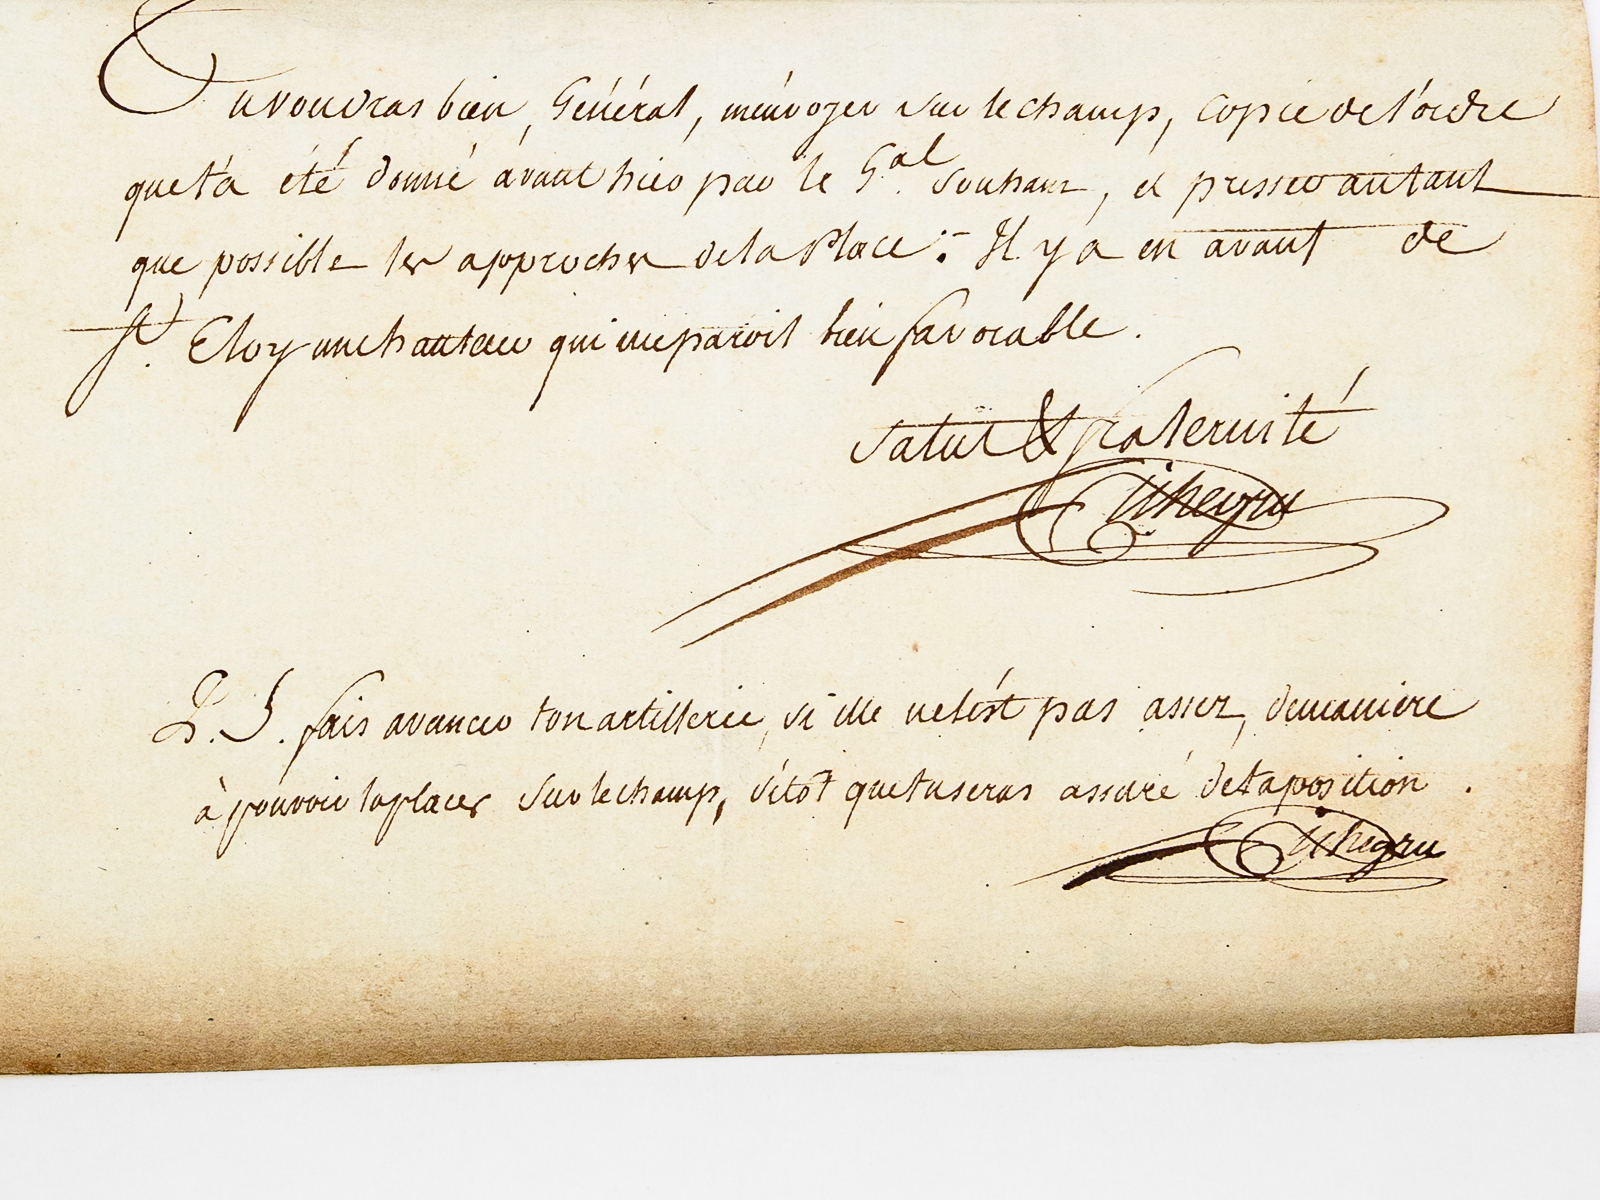 Tu voudras bien, Général, m'envoyer sur le champ, copie de l'ordre
que t'a été donné avant hier par le G.al Souham, et presser autant
que possible les approches de la Place : Il y a en avant de
St. Eloy une hauteur qui me paroit bien favorable.
Salut & fraternité
Pichegru
P. S. fais avancer ton artillerie, si elle ne l'est pas assez, de maniere
à pouvoir la placer sur le champ, sitôt que tu seras assuré de ta position.
Pichegru